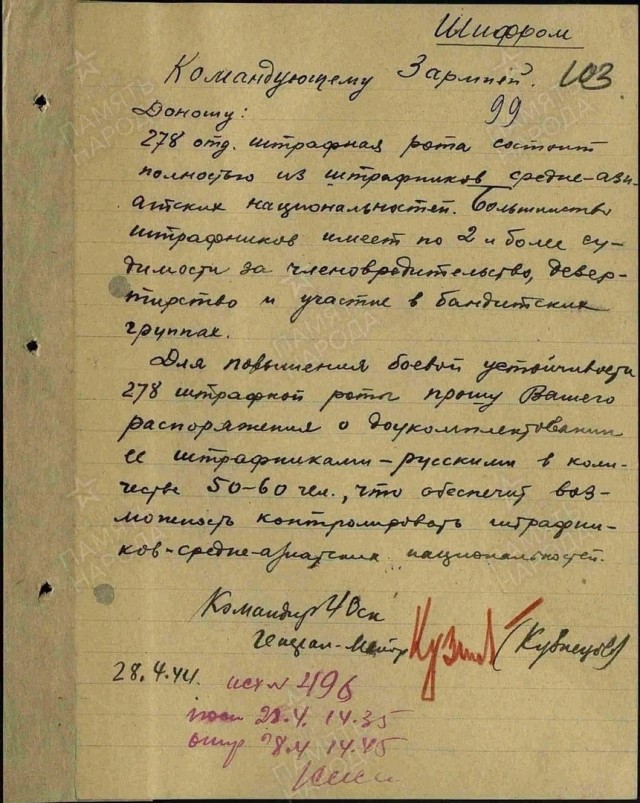 Шифром
Командующему 3 армией. 103
Доношу: 99
278 отд. штрафная рота состоит
полностью из штрафников средне-ази-
атских национальностей. Большинство
штрафников имеет по 2 и более су-
димости за членовредительство, дезер-
тирство и участие в бандитских
группах.
Для повышения боевой устойчивости
278 штрафной роты прошу Вашего
распоряжения о доукомплектовании
ее штрафниками-русскими в коли-
честве 50-60 чел., что обеспечит воз-
можность контролировать штрафни-
ков-средне-азиатских национальностей.
Командир 40 ск
Генерал-майор Кузнец (Кузнецов)
28.4.44. исх N 496
28.4. 14.35
отпр 28.4 14.45
ПАМЯТЬ
НАРОДА